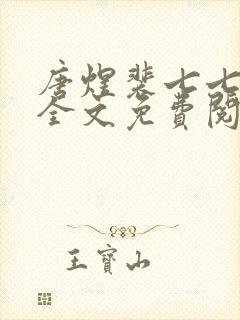 唐煌裴七七
全文免費閱
王寶山